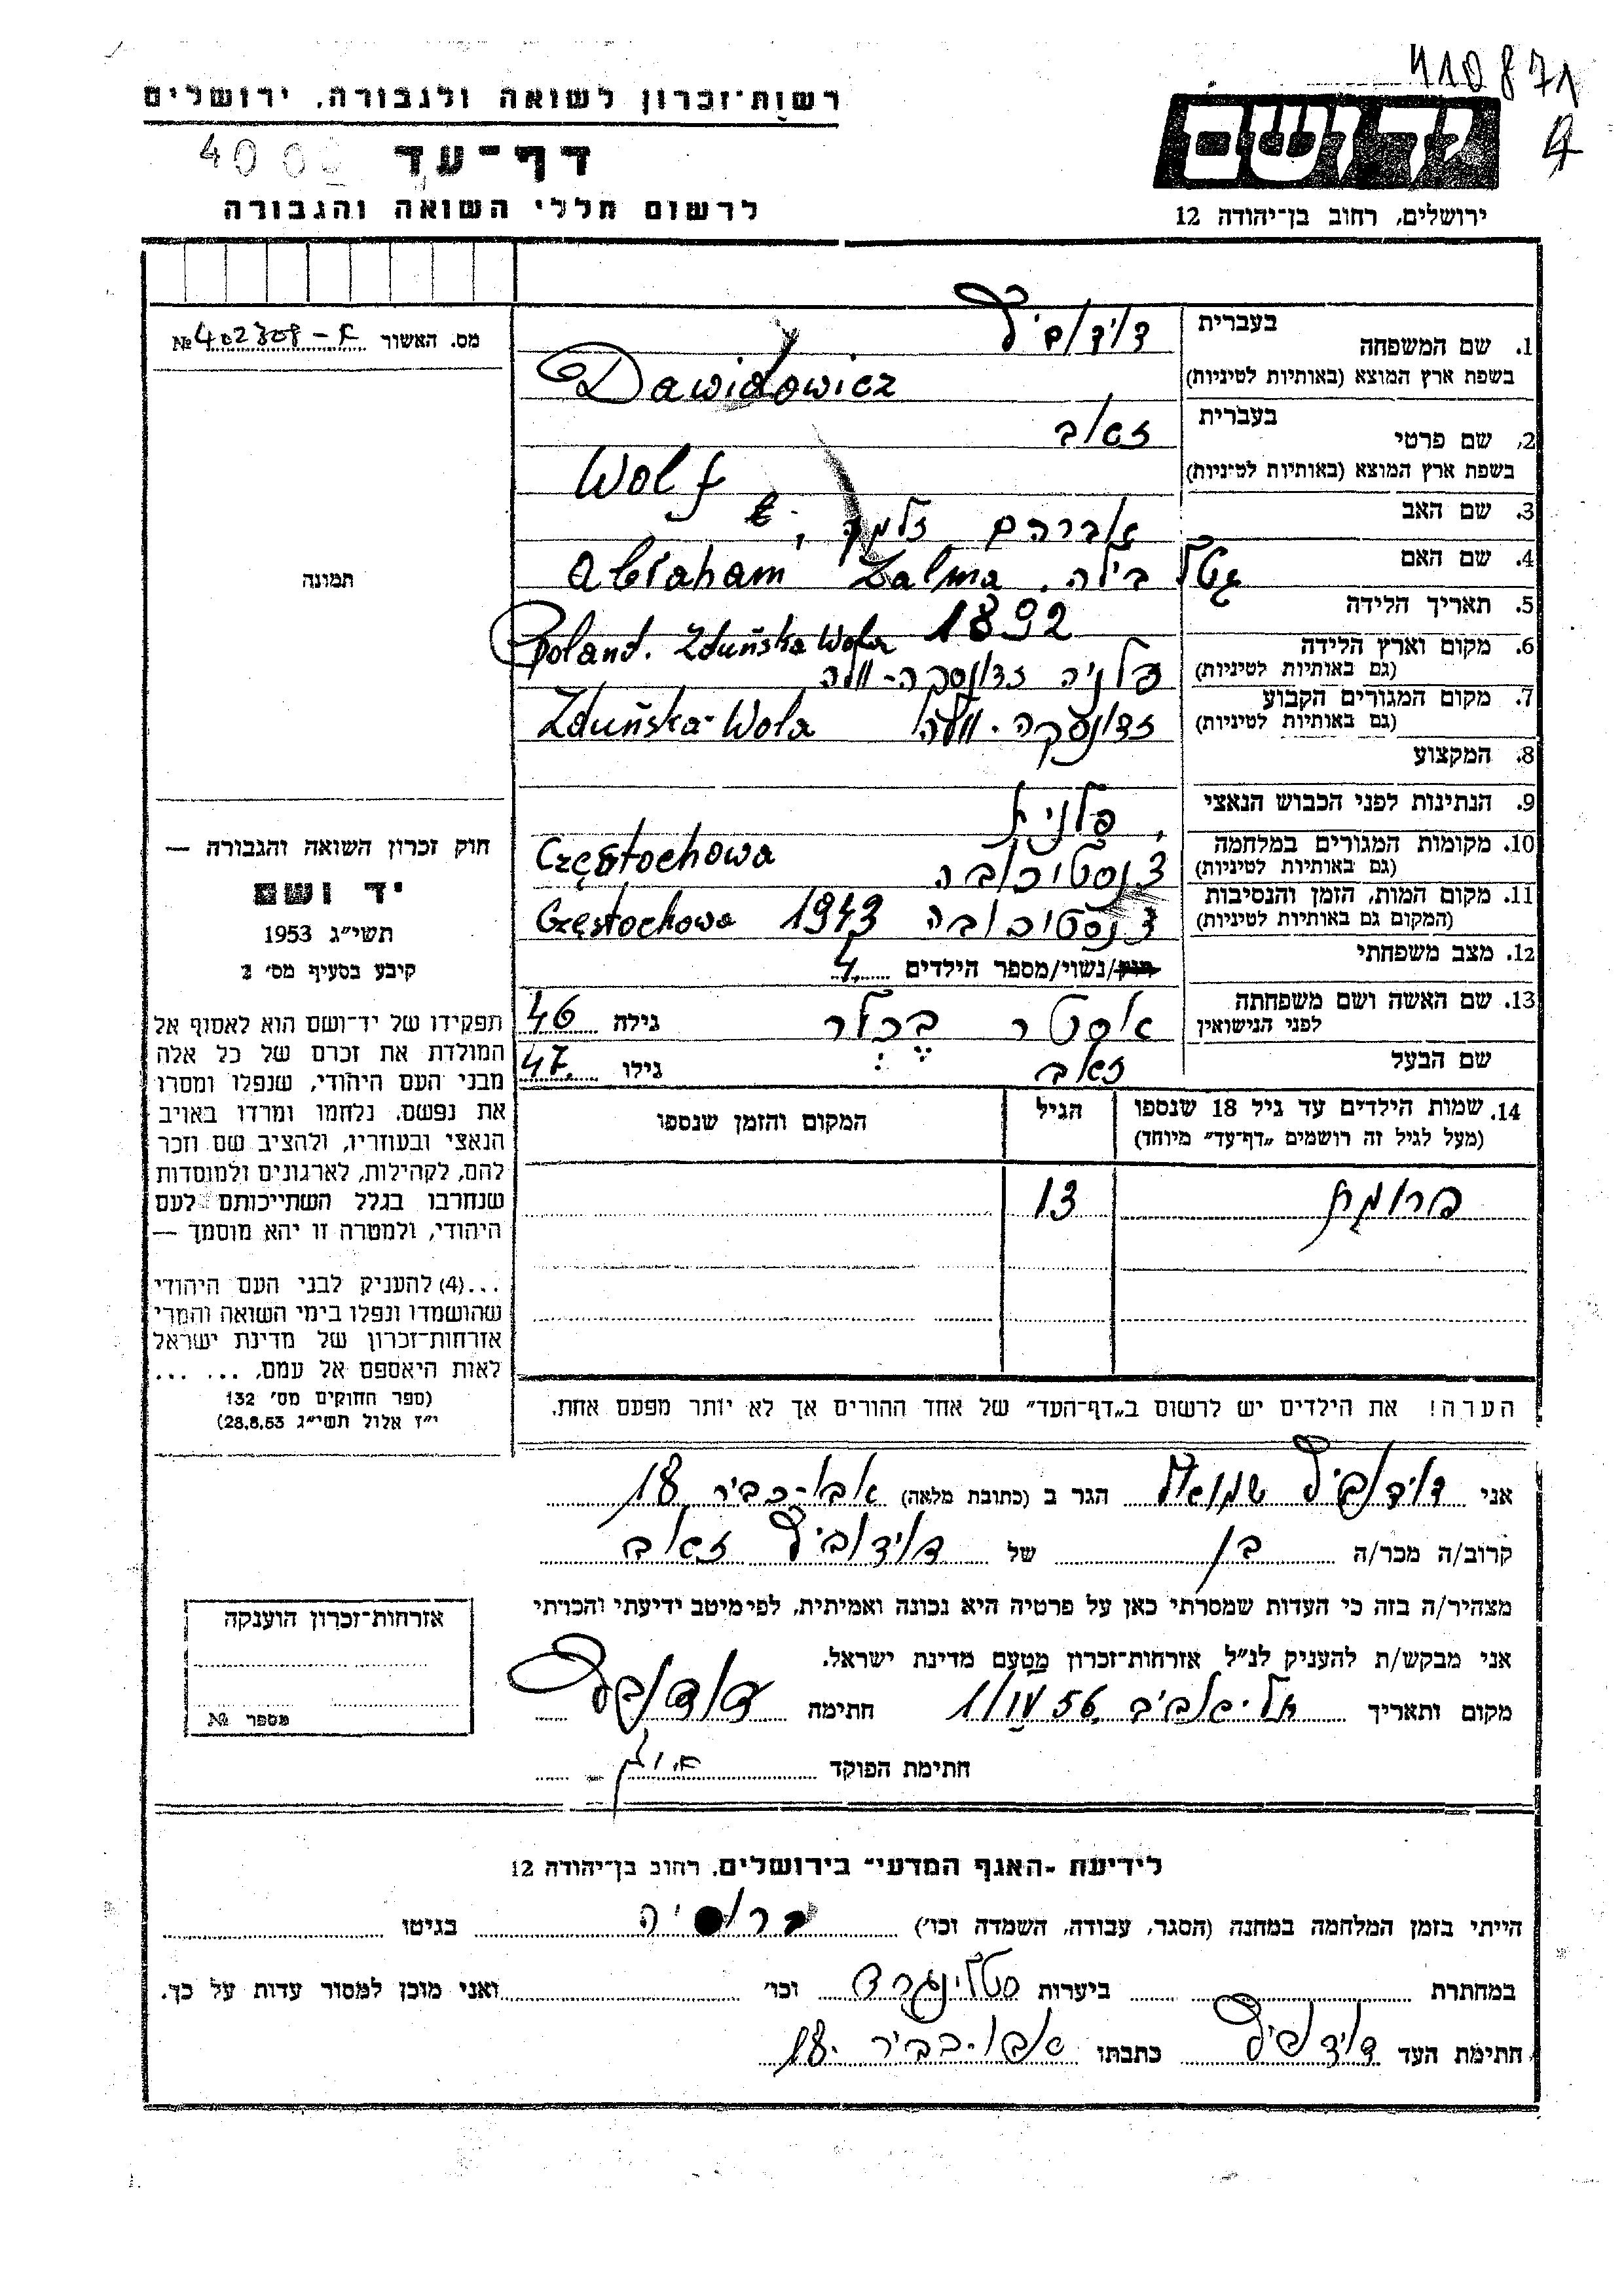 410871
רשות־זכרון לשואה ולגבורה, ירושלים
יד ושם
דף־עד
לרשום חללי השואה והגבורה
ירושלים, רחוב בן־יהודה 12
מס. האשור
תמונה
חוק זכרון השואה והגבורה —
יד ושם
תשי״ג 1953
קיבע בסעיף מס׳ 2
תפקידו של יד־ושם הוא לאסוף אל
המולדת את זכרם של כל אלה
מבני העם היהודי, שנפלו ומסרו
את נפשם, נלחמו ומרדו באויב
הנאצי ובעוזריו, ולהציב שם וזכר
להם, לקהילות, לארגונים ולמוסדות
שנחרבו בגלל השתייכותם לעם
היהודי, ולמטרה זו יהא מוסמך —
...(4) להעניק לבני העם היהודי
שהושמדו ונפלו בימי השואה והמרי
אזרחות־זכרון של מדינת ישראל
לאות היאספם אל עמם, ... ...
(ספר החוקים מס׳ 132
י״ז אלול תשי״ג 28.8.53)
1. שם המשפחה בעברית דוידוביץ
בשפת ארץ המוצא (באותיות לטיניות) Dawidowicz
2. שם פרטי בעברית זאב
בשפת ארץ המוצא (באותיות לטיניות) Wolf
3. שם האב אברהם זלמה
4. שם האם גיטל בילה. Abraham Zalma
5. תאריך הלידה 1892
6. מקום וארץ הלידה (גם באותיות לטיניות) Poland. Zduńska Wola
פלניה זדונסקה-וולה
7. מקום המגורים הקבוע (גם באותיות לטיניות) זדונסקה-וולה Zduńska-Wola
8. המקצוע
9. הנתינות לפני הכבוש הנאצי פלנית
10. מקומות המגורים במלחמה (גם באותיות לטיניות) צנסטיכובה Częstochowa
11. מקום המות, הזמן והנסיבות (המקום גם באותיות לטיניות) צנסטיכובה 1943 Częstochowa
12. מצב משפחתי רווק/נשוי/מספר הילדים 4
13. שם האשה ושם משפחתה לפני הנישואין אסטר בכלר גילה 46
שם הבעל זאב גילו 47
14. שמות הילדים עד גיל 18 שנספו הגיל המקום והזמן שנספו
(מעל לגיל זה רושמים „דף־עד״ מיוחד)
פרומת 13
הערה! את הילדים יש לרשום ב„דף־העד״ של אחד ההורים אך לא יותר מפעם אחת.
אני דוידוביץ שמואל הגר ב (כתובת מלאה) אבו-כביר 18
קרוב/ה מכר/ה בן של דוידוביץ זאב
מצהיר/ה בזה כי העדות שמסרתי כאן על פרטיה היא נכונה ואמיתית, לפי מיטב ידיעתי והכרתי
אני מבקש/ת להעניק לנ״ל אזרחות־זכרון מטעם מדינת ישראל.
מקום ותאריך תל-אביב חתימה דוידוביץ
חתימת הפוקד
אזרחות־זכרון הוענקה
מספר №
לידיעת „האגף המדעי״ בירושלים, רחוב בן־יהודה 12
הייתי בזמן המלחמה במחנה (הסגר, עבודה, השמדה וכו׳) ברוסיה בגיטו
במחתרת ביערות סטלינגרד וכו׳ ואני מוכן למסור עדות על כך.
חתימת העד דוידוביץ כתבתו אבו-כביר 18